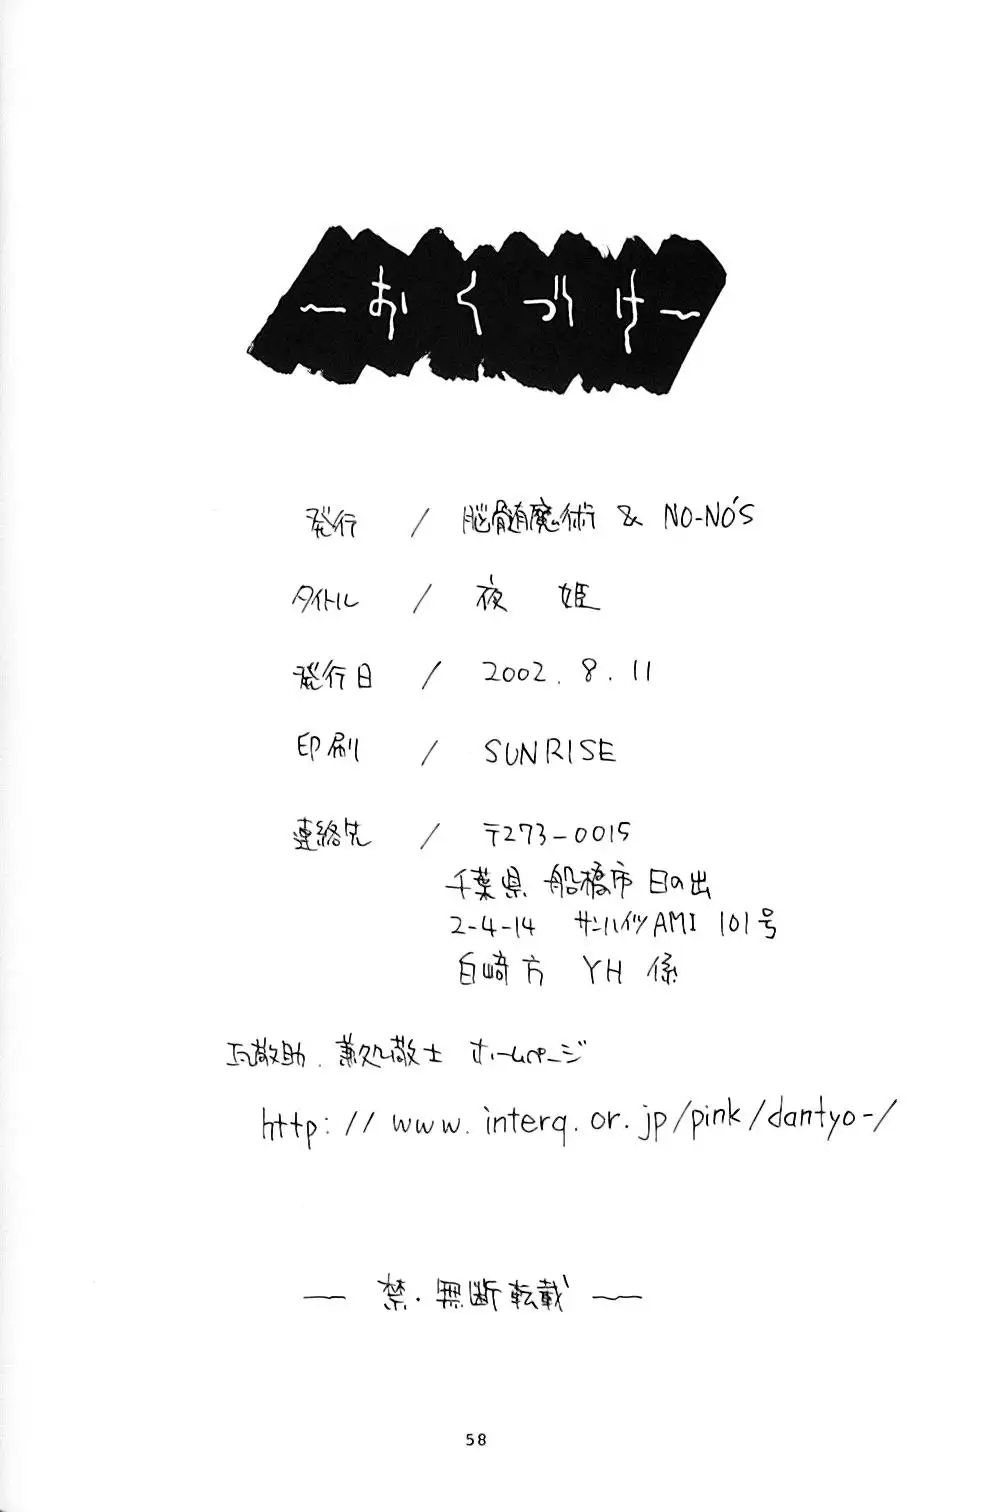 〜おくづけ〜
発行 / 脳髄魔術 & NO-NO'S
タイトル / 夜 姫
発行日 / 2002.8.11
印刷 / SUNRISE
連絡先 / 〒273-0015
千葉県 船橋市 日の出
2-4-14 サンハイツAMI 101号
白崎方 YH 係
瓦敬助.兼処敬士 ホームページ
http://www.interq.or.jp/pink/dantyo-/
— 禁.無断転載 —
58